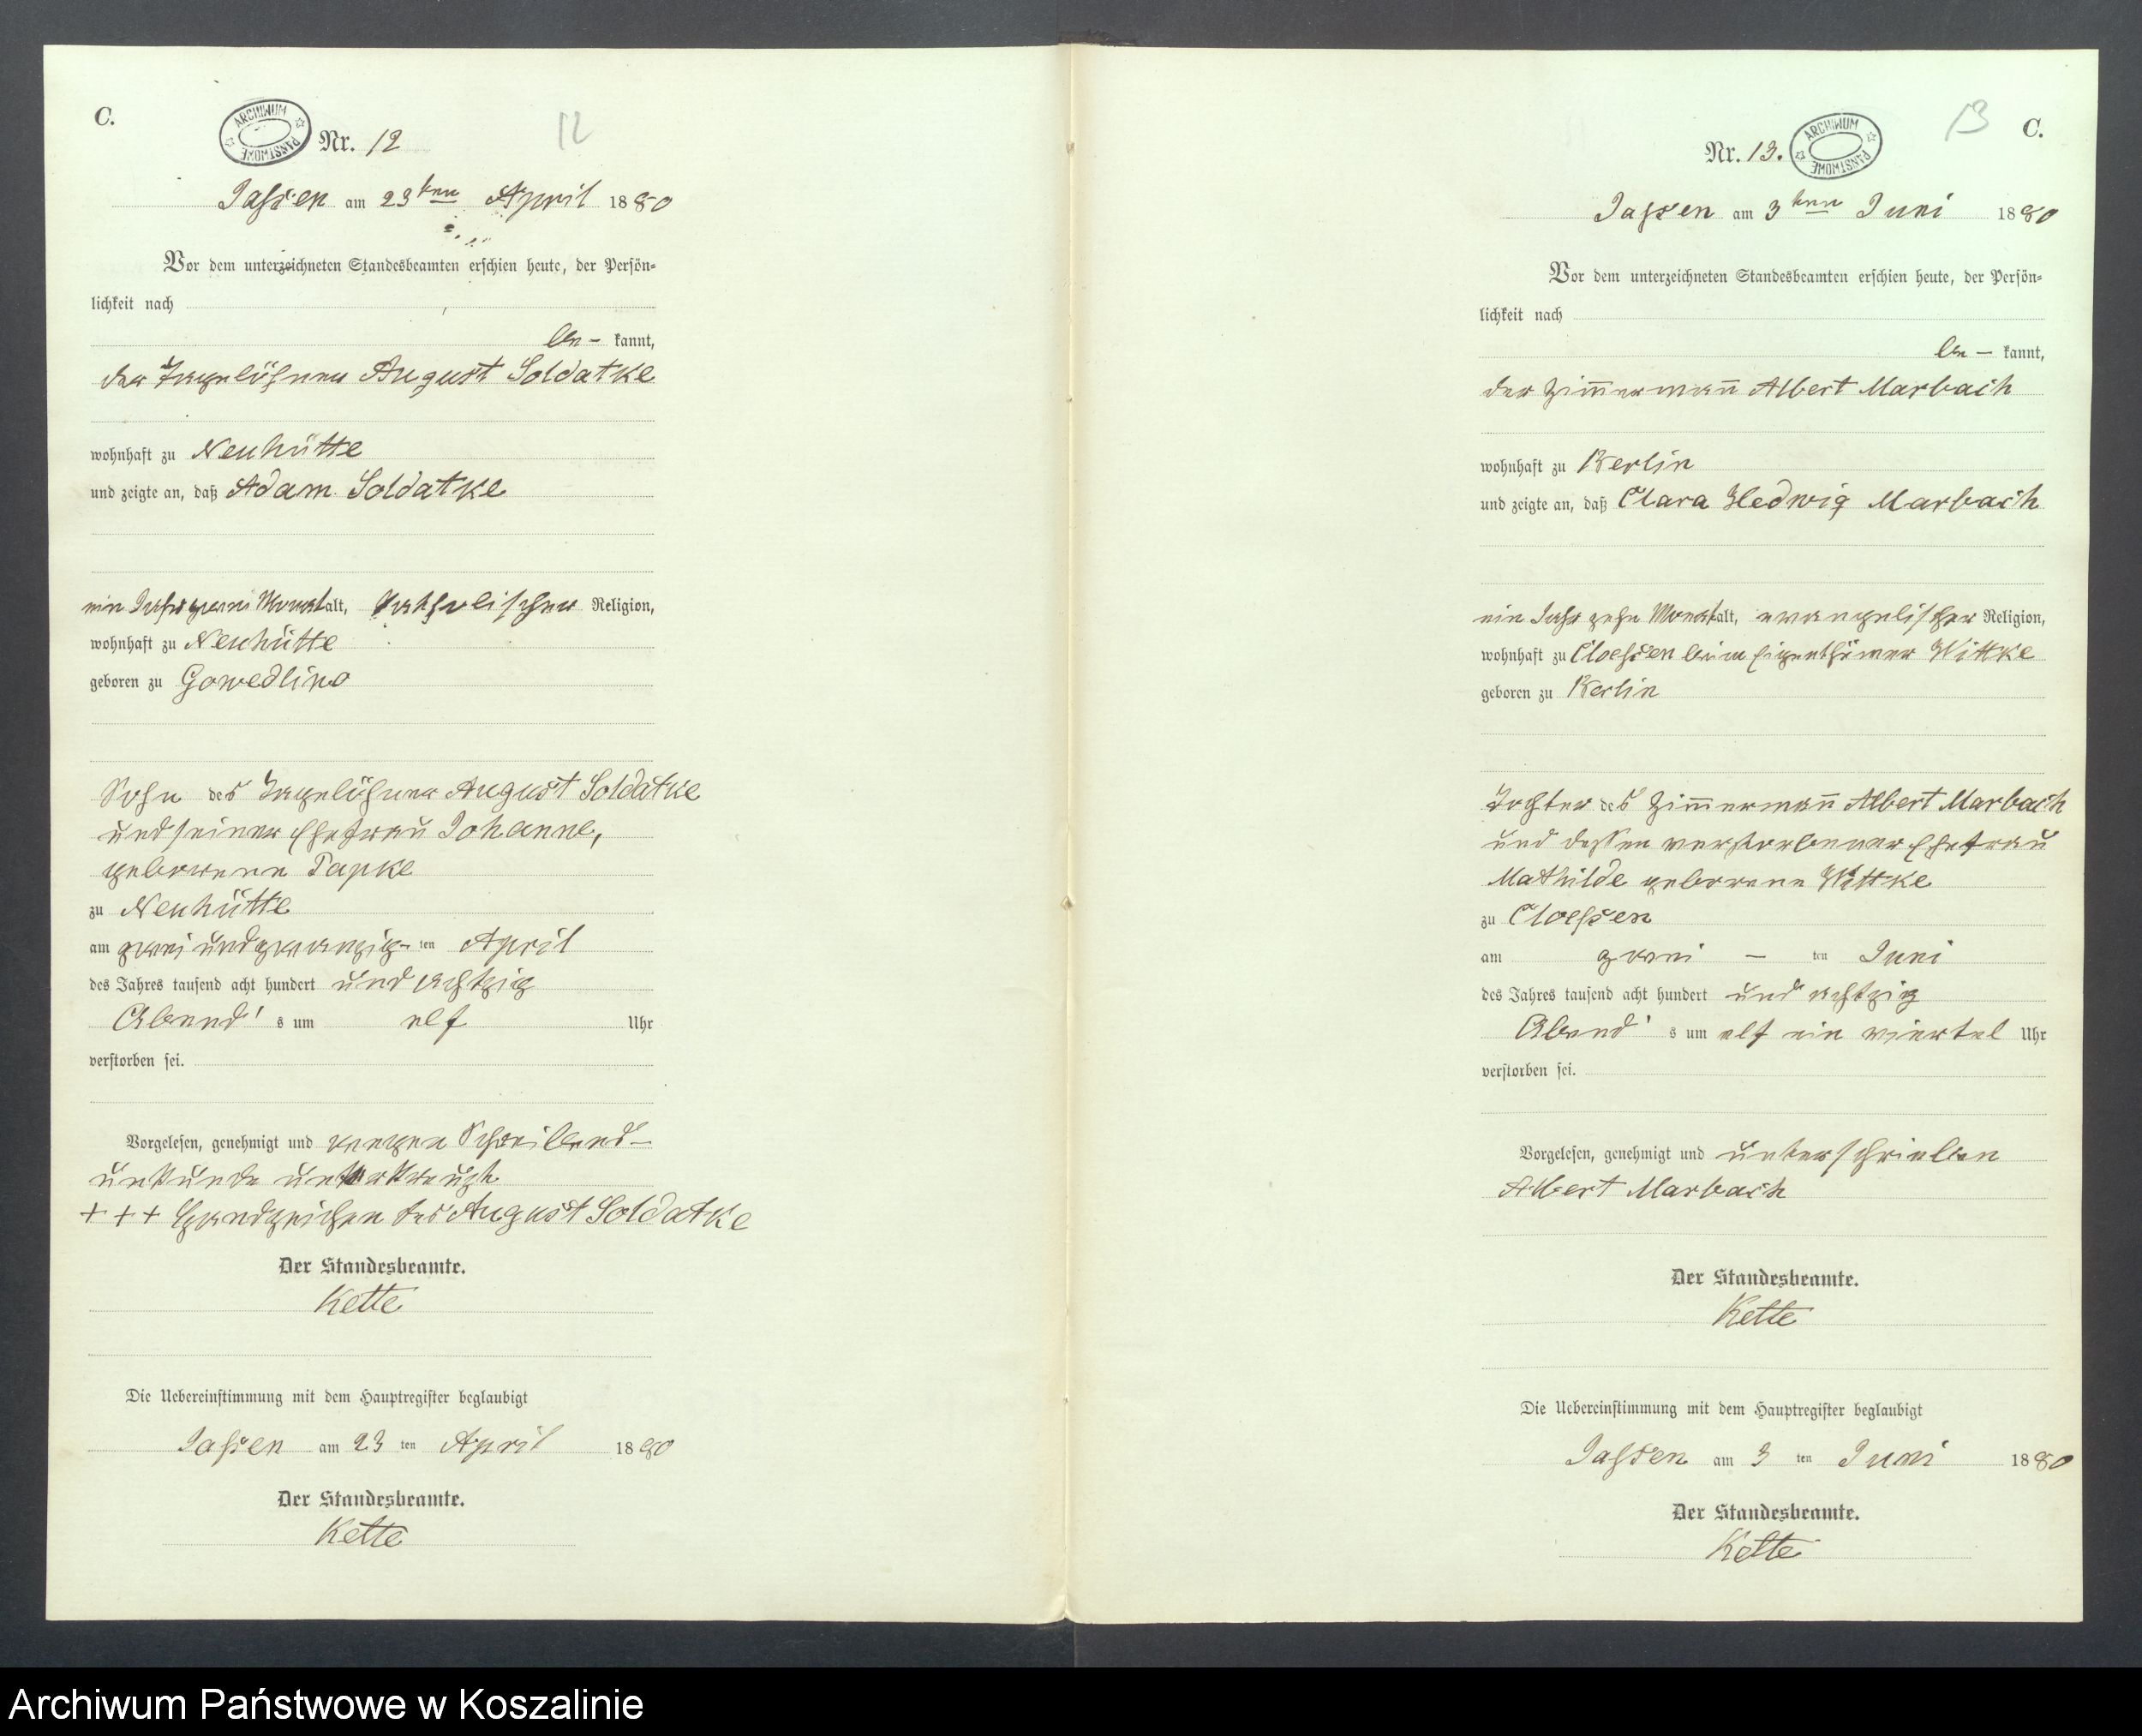 C.
ARCHIWUM PAŃSTWOWE
Nr. 12
12
Jassen am 23ten April 1880
Vor dem unterzeichneten Standesbeamten erschien heute, der Persön-
lichkeit nach
be- kannt,
der Tagelöhner August Soldatke
wohnhaft zu Neuhütte
und zeigte an, daß Adam Soldatke
ein Jahr zwei Monat alt, katholischer Religion,
wohnhaft zu Neuhütte
geboren zu Gowedlino
Sohn des Tagelöhner August Soldatke
und seiner Ehefrau Johanne,
geborene Papke
zu Neuhütte
am zwei und zwanzig- ten April
des Jahres tausend acht hundert und achtzig
Abend's um elf Uhr
verstorben sei.
Vorgelesen, genehmigt und wegen Schreibens-
unkunde unterkreuzt
+++ Handzeichen des August Soldatke
Der Standesbeamte.
Kette
Die Uebereinstimmung mit dem Hauptregister beglaubigt
Jassen am 23 ten April 1880
Der Standesbeamte.
Kette
13
C.
Nr. 13.
ARCHIWUM PAŃSTWOWE
Jassen am 3ten Juni 1880
Vor dem unterzeichneten Standesbeamten erschien heute, der Persön-
lichkeit nach
be- kannt,
der Zimmermann Albert Marbach
wohnhaft zu Berlin
und zeigte an, daß Clara Hedwig Marbach
ein Jahr zehn Monat alt, evangelischer Religion,
wohnhaft zu Cloessen beim Eigenthümer Wittke
geboren zu Berlin
Tochter des Zimmermann Albert Marbach
und dessen verstorbener Ehefrau
Mathilde geborene Wittke
zu Cloessen
am zwei - ten Juni
des Jahres tausend acht hundert und achtzig
Abend's um elf ein viertel Uhr
verstorben sei.
Vorgelesen, genehmigt und unterschrieben
Albert Marbach
Der Standesbeamte.
Kette
Die Uebereinstimmung mit dem Hauptregister beglaubigt
Jassen am 3 ten Juni 1880
Der Standesbeamte.
Kette
Archiwum Państwowe w Koszalinie